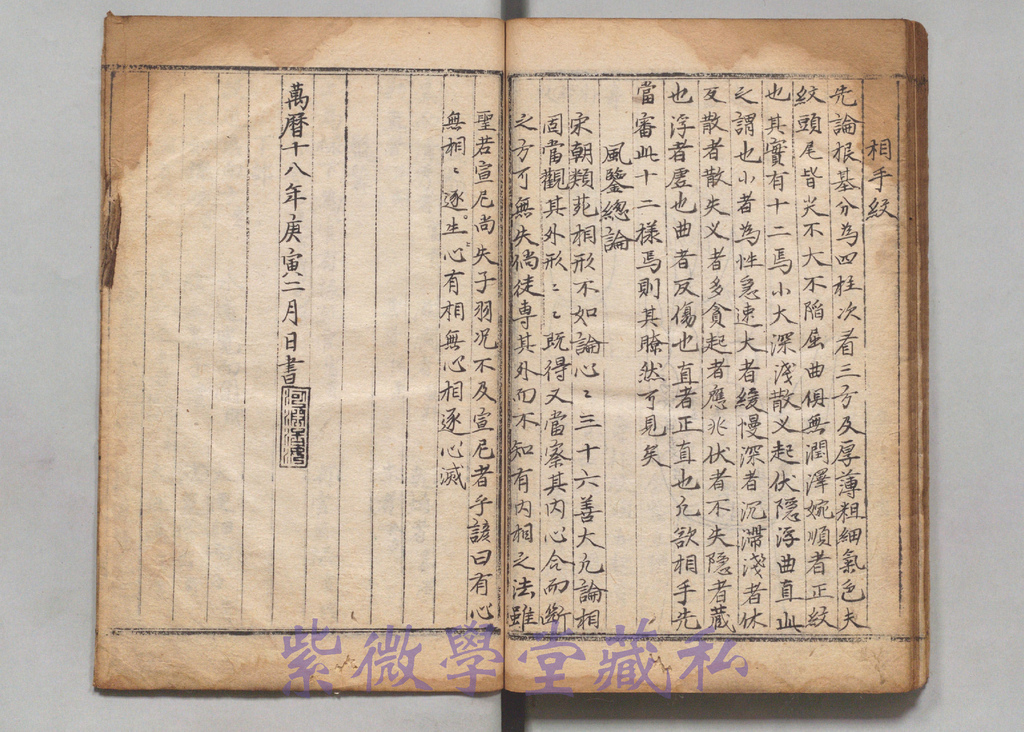 相手紋
先論根基分為四柱次看三方及厚薄粗細氣色夫
紋頭尾皆尖不大不陷屈曲俱無潤澤婉順者正紋
也其實有十二焉小大深淺散乂起伏隱浮曲直此
之謂也小者為性急速大者緩慢深者沉滯淺者休
反散者散失乂者多貪起者應兆伏者不失隱者藏
也浮者虛也曲者反傷也直者正直也凢欲相手先
當審此十二樣焉則其瞭然可見矣
風鑒緫論
宋朝類苑相形不如論心〻三十六善大凢論相
固當觀其外形〻〻既得又當察其內心合而斷
之方可無失倘徒專其外而不知有內相之法雖
聖若宣尼尚失子羽况不及宣尼者乎諺曰有心
無相〻逐生心有相無心相逐心滅
萬曆十八年庚寅二月日書
紫微學堂藏私